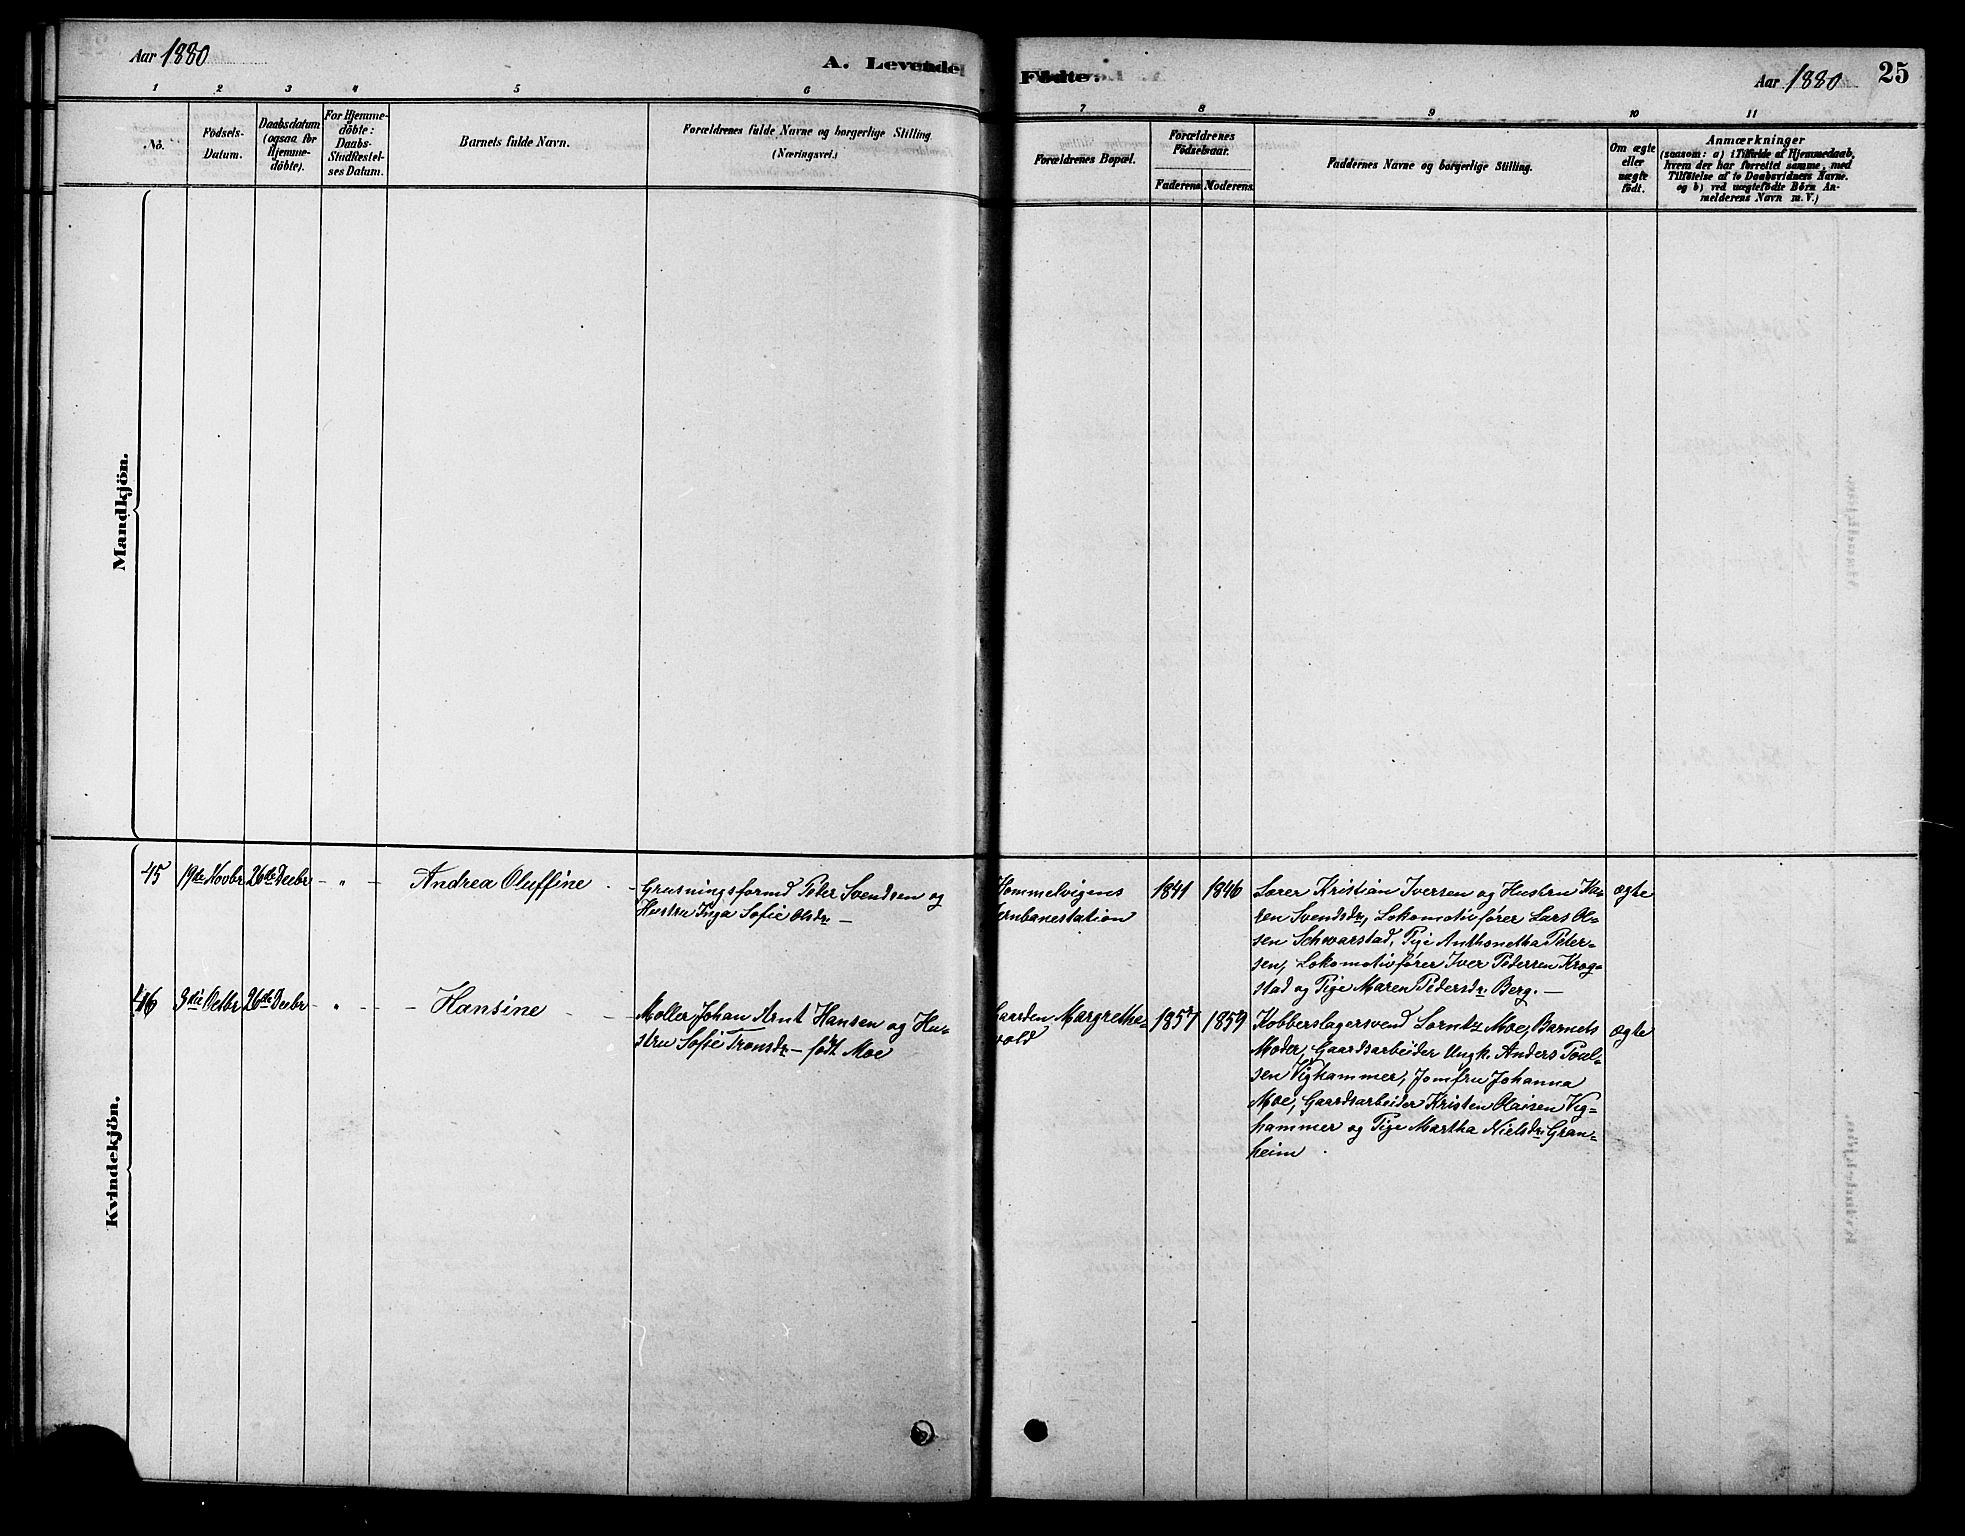 Aar 1880
A. Levende
Fødte.
Aar 1880
25
1 2 3 4 5 6 7 8 9 10 11
No.
Födsels-
Datum.
Daabsdatum
(ogsaa for
Hjemme-
döbte).
For Hjemme-
döbte:
Daabs-
Stadfæstel-
ses Datum.
Barnets fulde Navn.
Forældrenes fulde Navne og borgerlige Stilling.
(Næringsvei.)
Forældrenes Bopæl.
Forældrenes
Födselsaar.
Faderens Moderens.
Faddernes Navne og borgerlige Stilling.
Om ægte
eller
uægte
födt.
Anmærkninger
(saasom: a) i Tilfælde af Hjemmedaab,
hvem der har forrettet samme, med
Tilföielse af to Daabsvidners Navne.
og b) ved uægtefödte Börn An-
melderens Navn m. V.)
Mandkjön.
Kvindekjön.
45
19de Novbr
26de Decbr
- " -
Andrea Oluffine
Grusningsformd Peter Svendsen og
Hustru Inga Sofie Olsdr -
Hommelvigens
Jernbanestation
1841
1846
Lærer Kristian Iversen og Hustru Ka-
ren Svendsdr, Lokomotivfører Lars Ol-
sen Schwarstad, Pige Anthonetha Peter-
sen, Lokomotivfører Iver Pedersen Krog-
stad og Pige Maren Pedersdr Berg. -
ægte
46
3die Octbr
26de Decbr
- " -
Hansine
Møller Johan Arnt Hansen og Hu-
stru Sofie Tronsdr - født Moe
Gaarden Margrethe-
vold
1857
1859
Kobberslagersvend Lorntz Moe, Barnets
Moder, Gaardsarbeider Ungk. Anders Poul-
sen Vighammer, Jomfru Johanna
Moe, Gaardsarbeider Kristen Olaisen Vig-
hammer og Pige Martha Nielsdr Gran-
heim
ægte